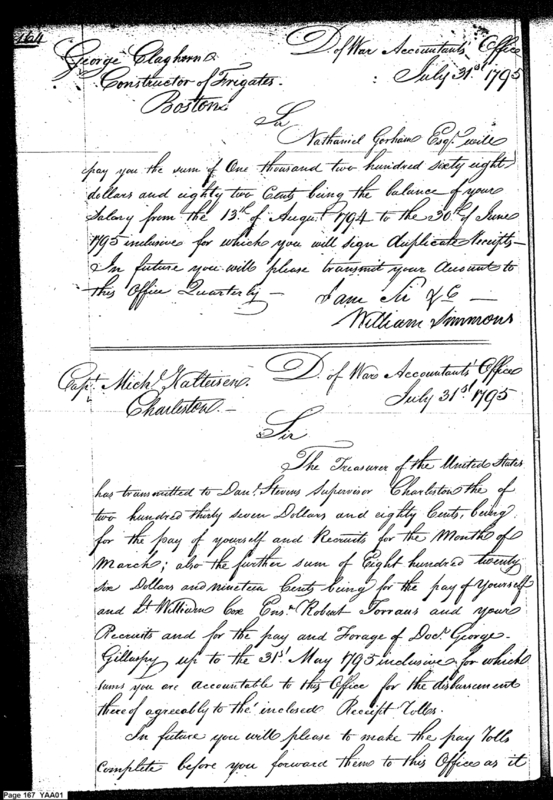 164
George Claghorn
Constructor of Frigates
Boston
D. of War Accountants Office
July 31st 1795
Sir
Nathaniel Gorham Esqr. will
pay you the sum of One thousand two hundred sixty eight
dollars and eighty two Cents being the balance of your
Salary from the 13th of August 1794 to the 30th of June
1795 inclusive for which you will sign duplicate Receipts –
In future you will please transmit your Account to
this Office Quarterly –
I am Sir &c –
William Simmons
Capt. Michl. Kalteisen
Charleston –
D. of War Accountants Office
July 31st 1795
Sir
The Treasurer of the United States
has transmitted to Danl. Stevens Supervisor Charleston the of
two hundred thirty seven Dollars and eighty Cents, being
for the pay of yourself and Recruits for the Month of
March; also the further sum of Eight hundred twenty
six Dollars and nineteen Cents being for the pay of yourself
and Lt. William Cox Ensn. Robert Torrans and your
Recruits and for the pay and Forage of Docr. George
Gillaspy up to the 31st May 1795 inclusive, for which
sums you are accountable to this Office for the disbursement
thereof agreeably to the inclosed Receipt Rolls.
In future you will please to make the pay Rolls
complete before you forward them to this Office as it
Page 167 YAA01